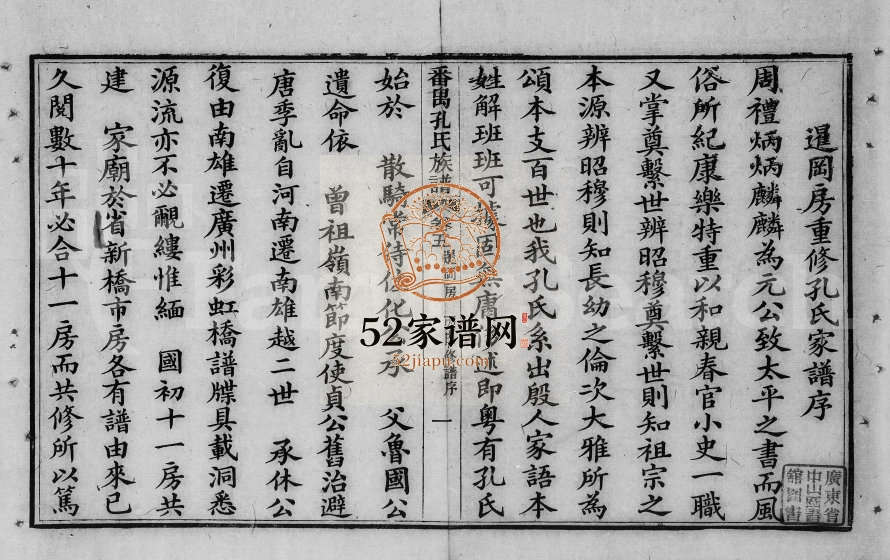 暹岡房重修孔氏家譜序
周禮炳炳麟麟為元公致太平之書而風
俗所紀康樂特重以和親春官小史一職
又掌奠繫世辨昭穆奠繫世則知祖宗之
本源辨昭穆則知長幼之倫次大雅所為
頌本支百世也我孔氏系出殷人家語本
姓解班班可 無庸 述即粵有孔氏
番禺孔氏族譜 五 房 譜序 一
始於 散騎常侍 化 承 父魯國公
遺命依 曾祖嶺南節度使貞公舊治避
唐季亂自河南遷南雄越二世 承休公
復由南雄遷廣州彩虹橋譜牒具載洞悉
源流亦不必覼縷惟緬 國初十一房共
建 家廟於省新橋市房各有譜由來已
久閱數十年必合十一房而共修所以篤
廣東省
中山圖書
館圖書
52家谱网
52jiapu.com